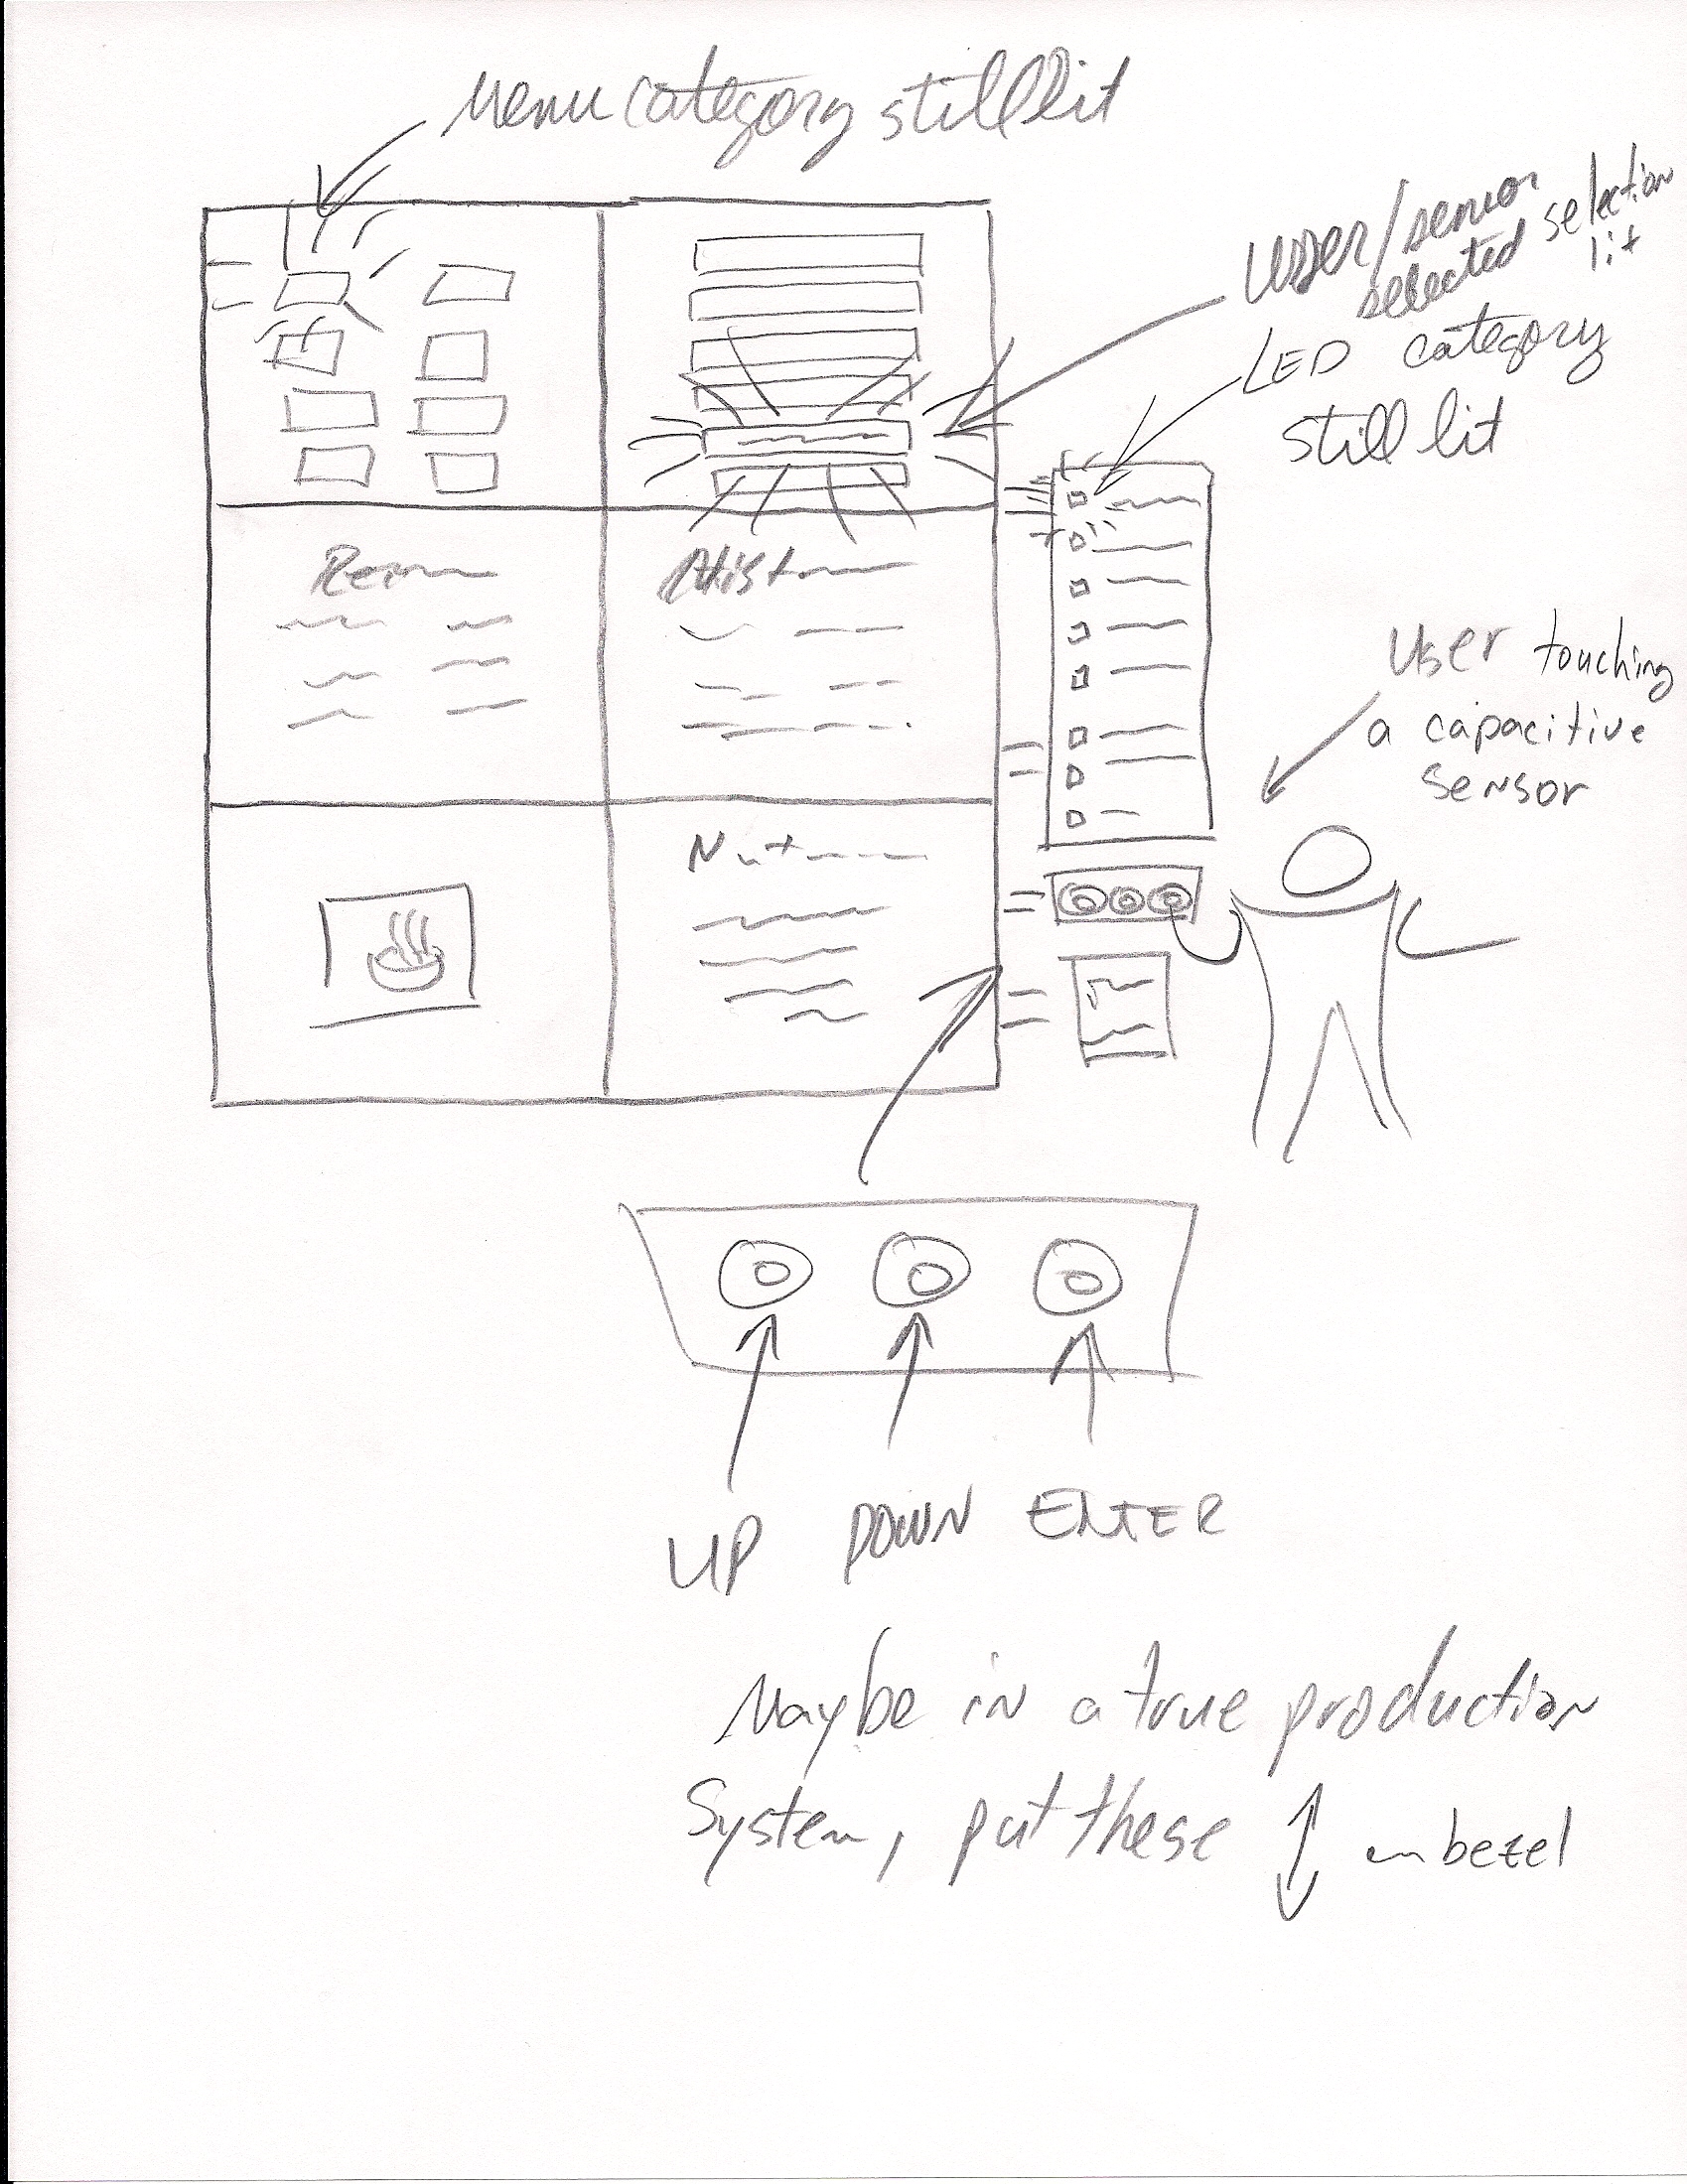 Menu category still lit
User/sensor
selected selection
lit
LED category
still lit
Nut
User touching
a capacitive
sensor
UP DOWN ENTER
Maybe in a true production
System, put these ↕ on bezel